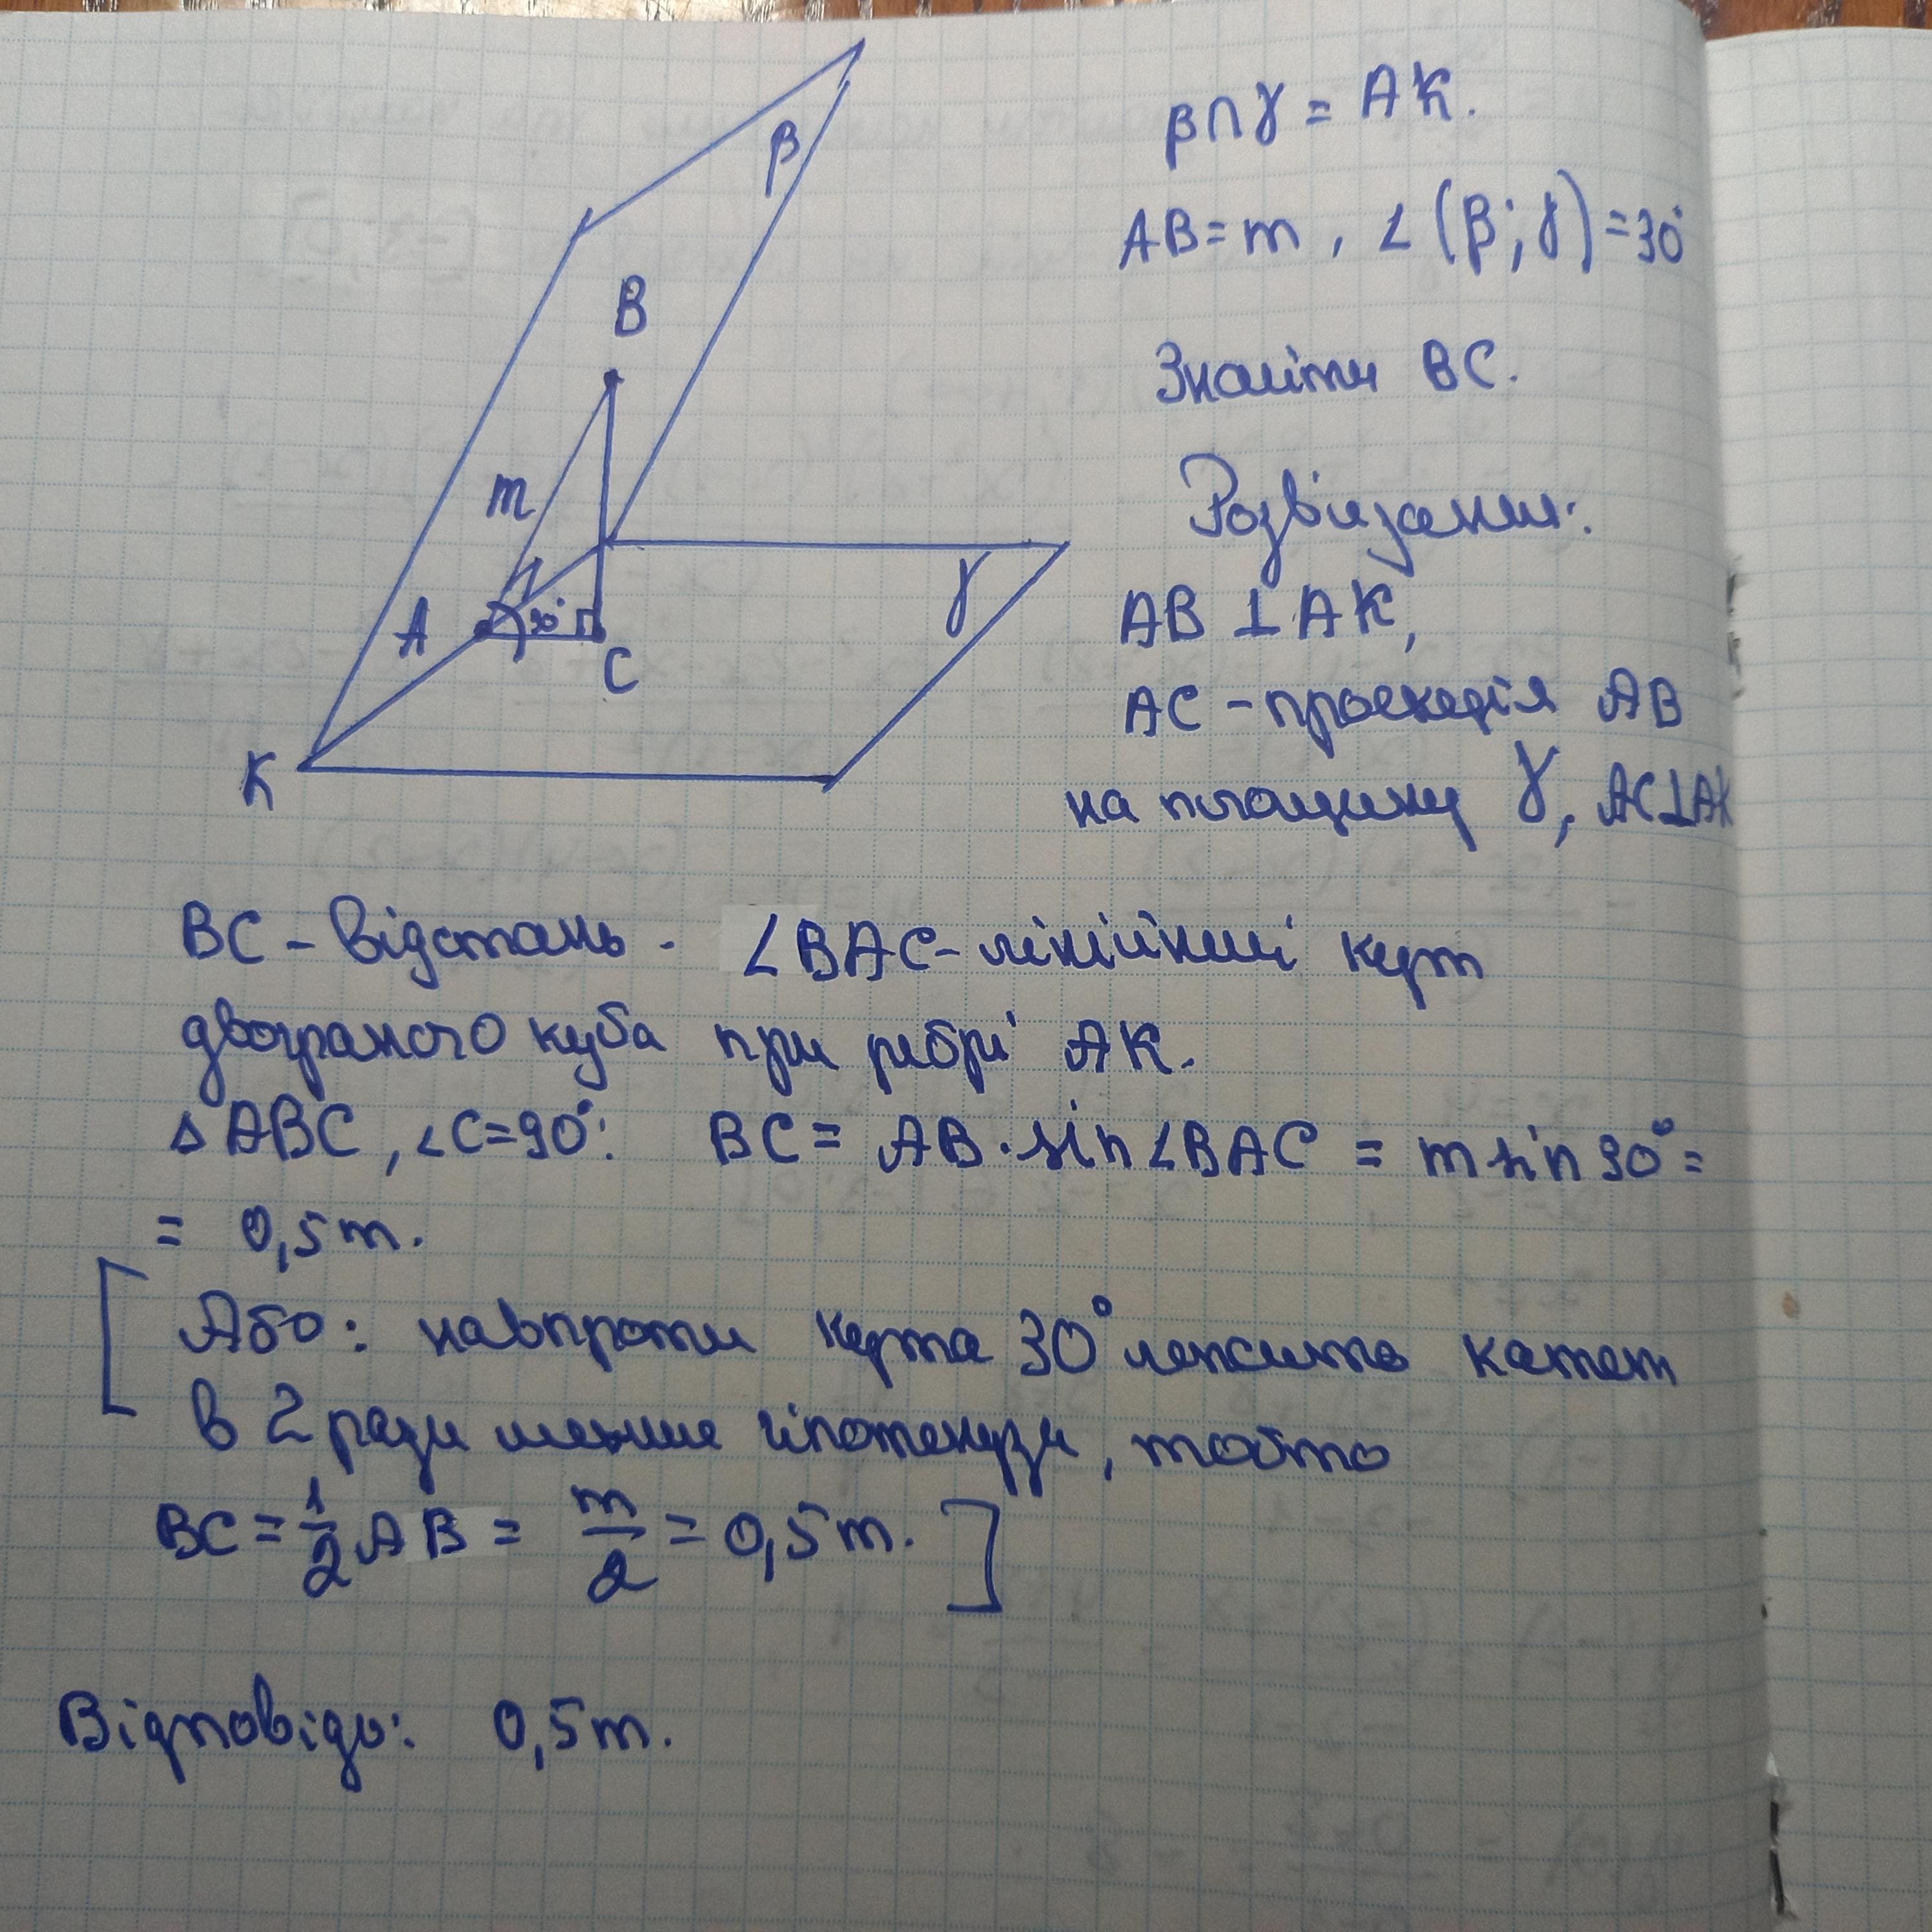 β
B
m
A
30°
C
K
γ
β∩γ = AK.
AB = m, ∠(β; γ) = 30°
Знайти BC.
Розв'язання:
AB ⊥ AK,
AC – проекція AB
на площину γ, AC⊥AK
BC – відстань. ∠BAC – лінійний кут
двогранного куба при ребрі AK.
△ABC, ∠C=90°: BC = AB · sin∠BAC = m sin 30° =
= 0,5m.
[Або: навпроти кута 30° лежить катет
в 2 рази менше гіпотенузи, тобто
BC = 1/2 AB = m/2 = 0,5m.]
Відповідь: 0,5m.